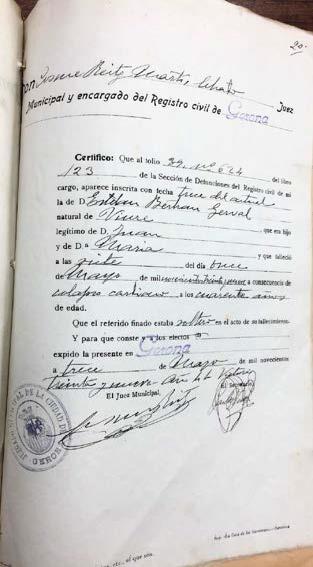 20.
Don Juez
Municipal y encargado del Registro civil de Gerona
Certifico: Que al folio 89 nº 624 del libro
123 de la Sección de Defunciones del Registro civil de mi
cargo, aparece inscrita con fecha trece del actual
la de D. Esteban
natural de que era hijo
legítimo de D. Juan
y de D.ª Maria y que falleció
a las siete del día once
de Mayo de mil novecientos treinta y nueve a consecuencia de
colapso cardiaco a los cuarenta años
de edad.
Que el referido finado estaba soltero en el acto de su fallecimiento.
Y para que conste y los efectos
expido la presente en Gerona
a trece de Mayo de mil novecientos
treinta y nueve Año de la Victoria
El Juez Municipal, El Secretario,
JUZGADO MUNICIPAL DE LA CIUDAD DE GERONA